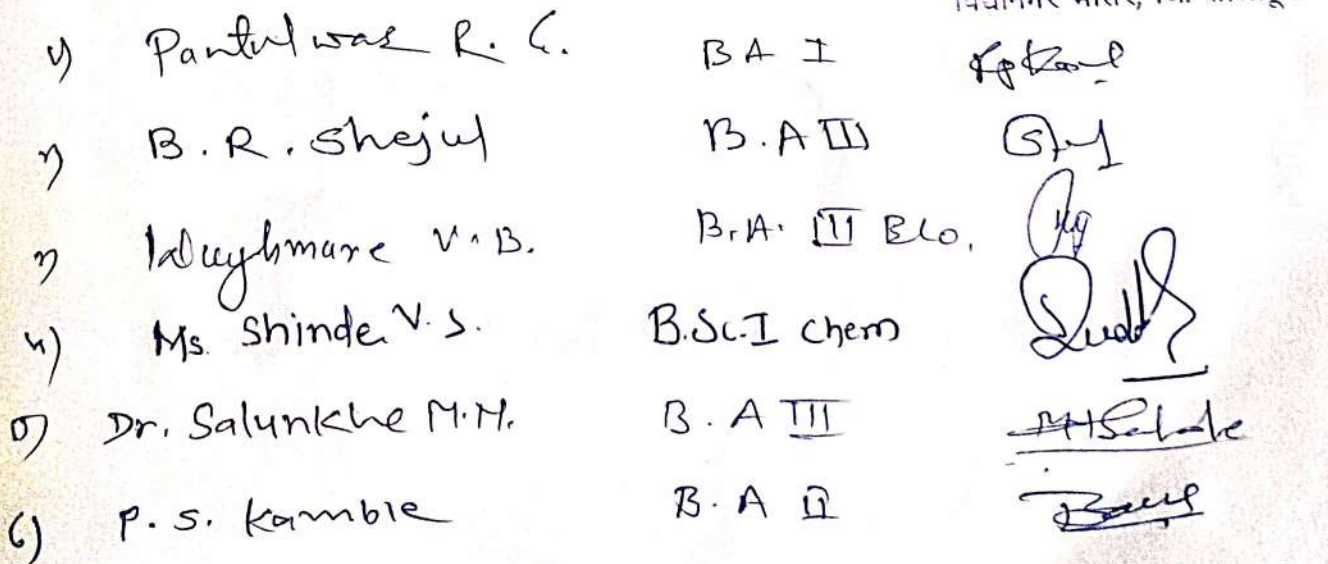 १) Pantulwar R. G. BA I
२) B. R. Shejul B.A III
३) Waghmare V. B. B.A. III Eco.
४) Ms. Shinde V. S. B.Sc. I Chem
५) Dr. Salunkhe M.M. B. A III
6) P. S. Kamble B. A II